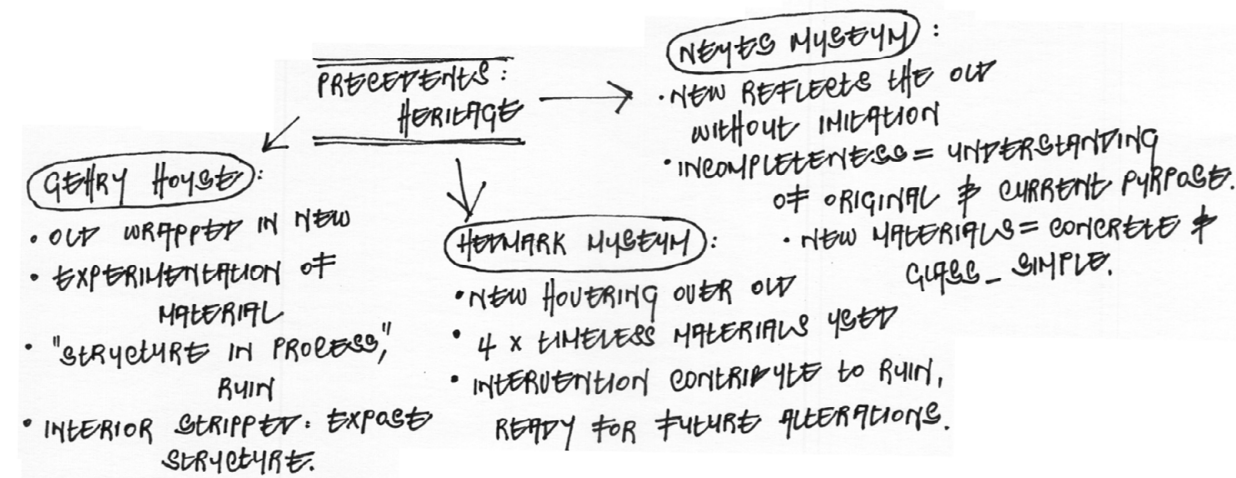 PRECEDENTS:
HERITAGE
GEHRY HOUSE:
• OLD WRAPPED IN NEW
• EXPERIMENTATION OF
MATERIAL
• "STRUCTURE IN PROCESS,"
RUIN
• INTERIOR STRIPPED: EXPOSE
STRUCTURE.
HEDMARK MUSEUM:
• NEW HOVERING OVER OLD
• 4 x TIMELESS MATERIALS USED
• INTERVENTION CONTRIBUTE TO RUIN,
READY FOR FUTURE ALTERATIONS.
NEUES MUSEUM:
• NEW REFLECTS THE OLD
WITHOUT IMITATION
• INCOMPLETENESS = UNDERSTANDING
OF ORIGINAL & CURRENT PURPOSE.
• NEW MATERIALS = CONCRETE &
GLASS_ SIMPLE.